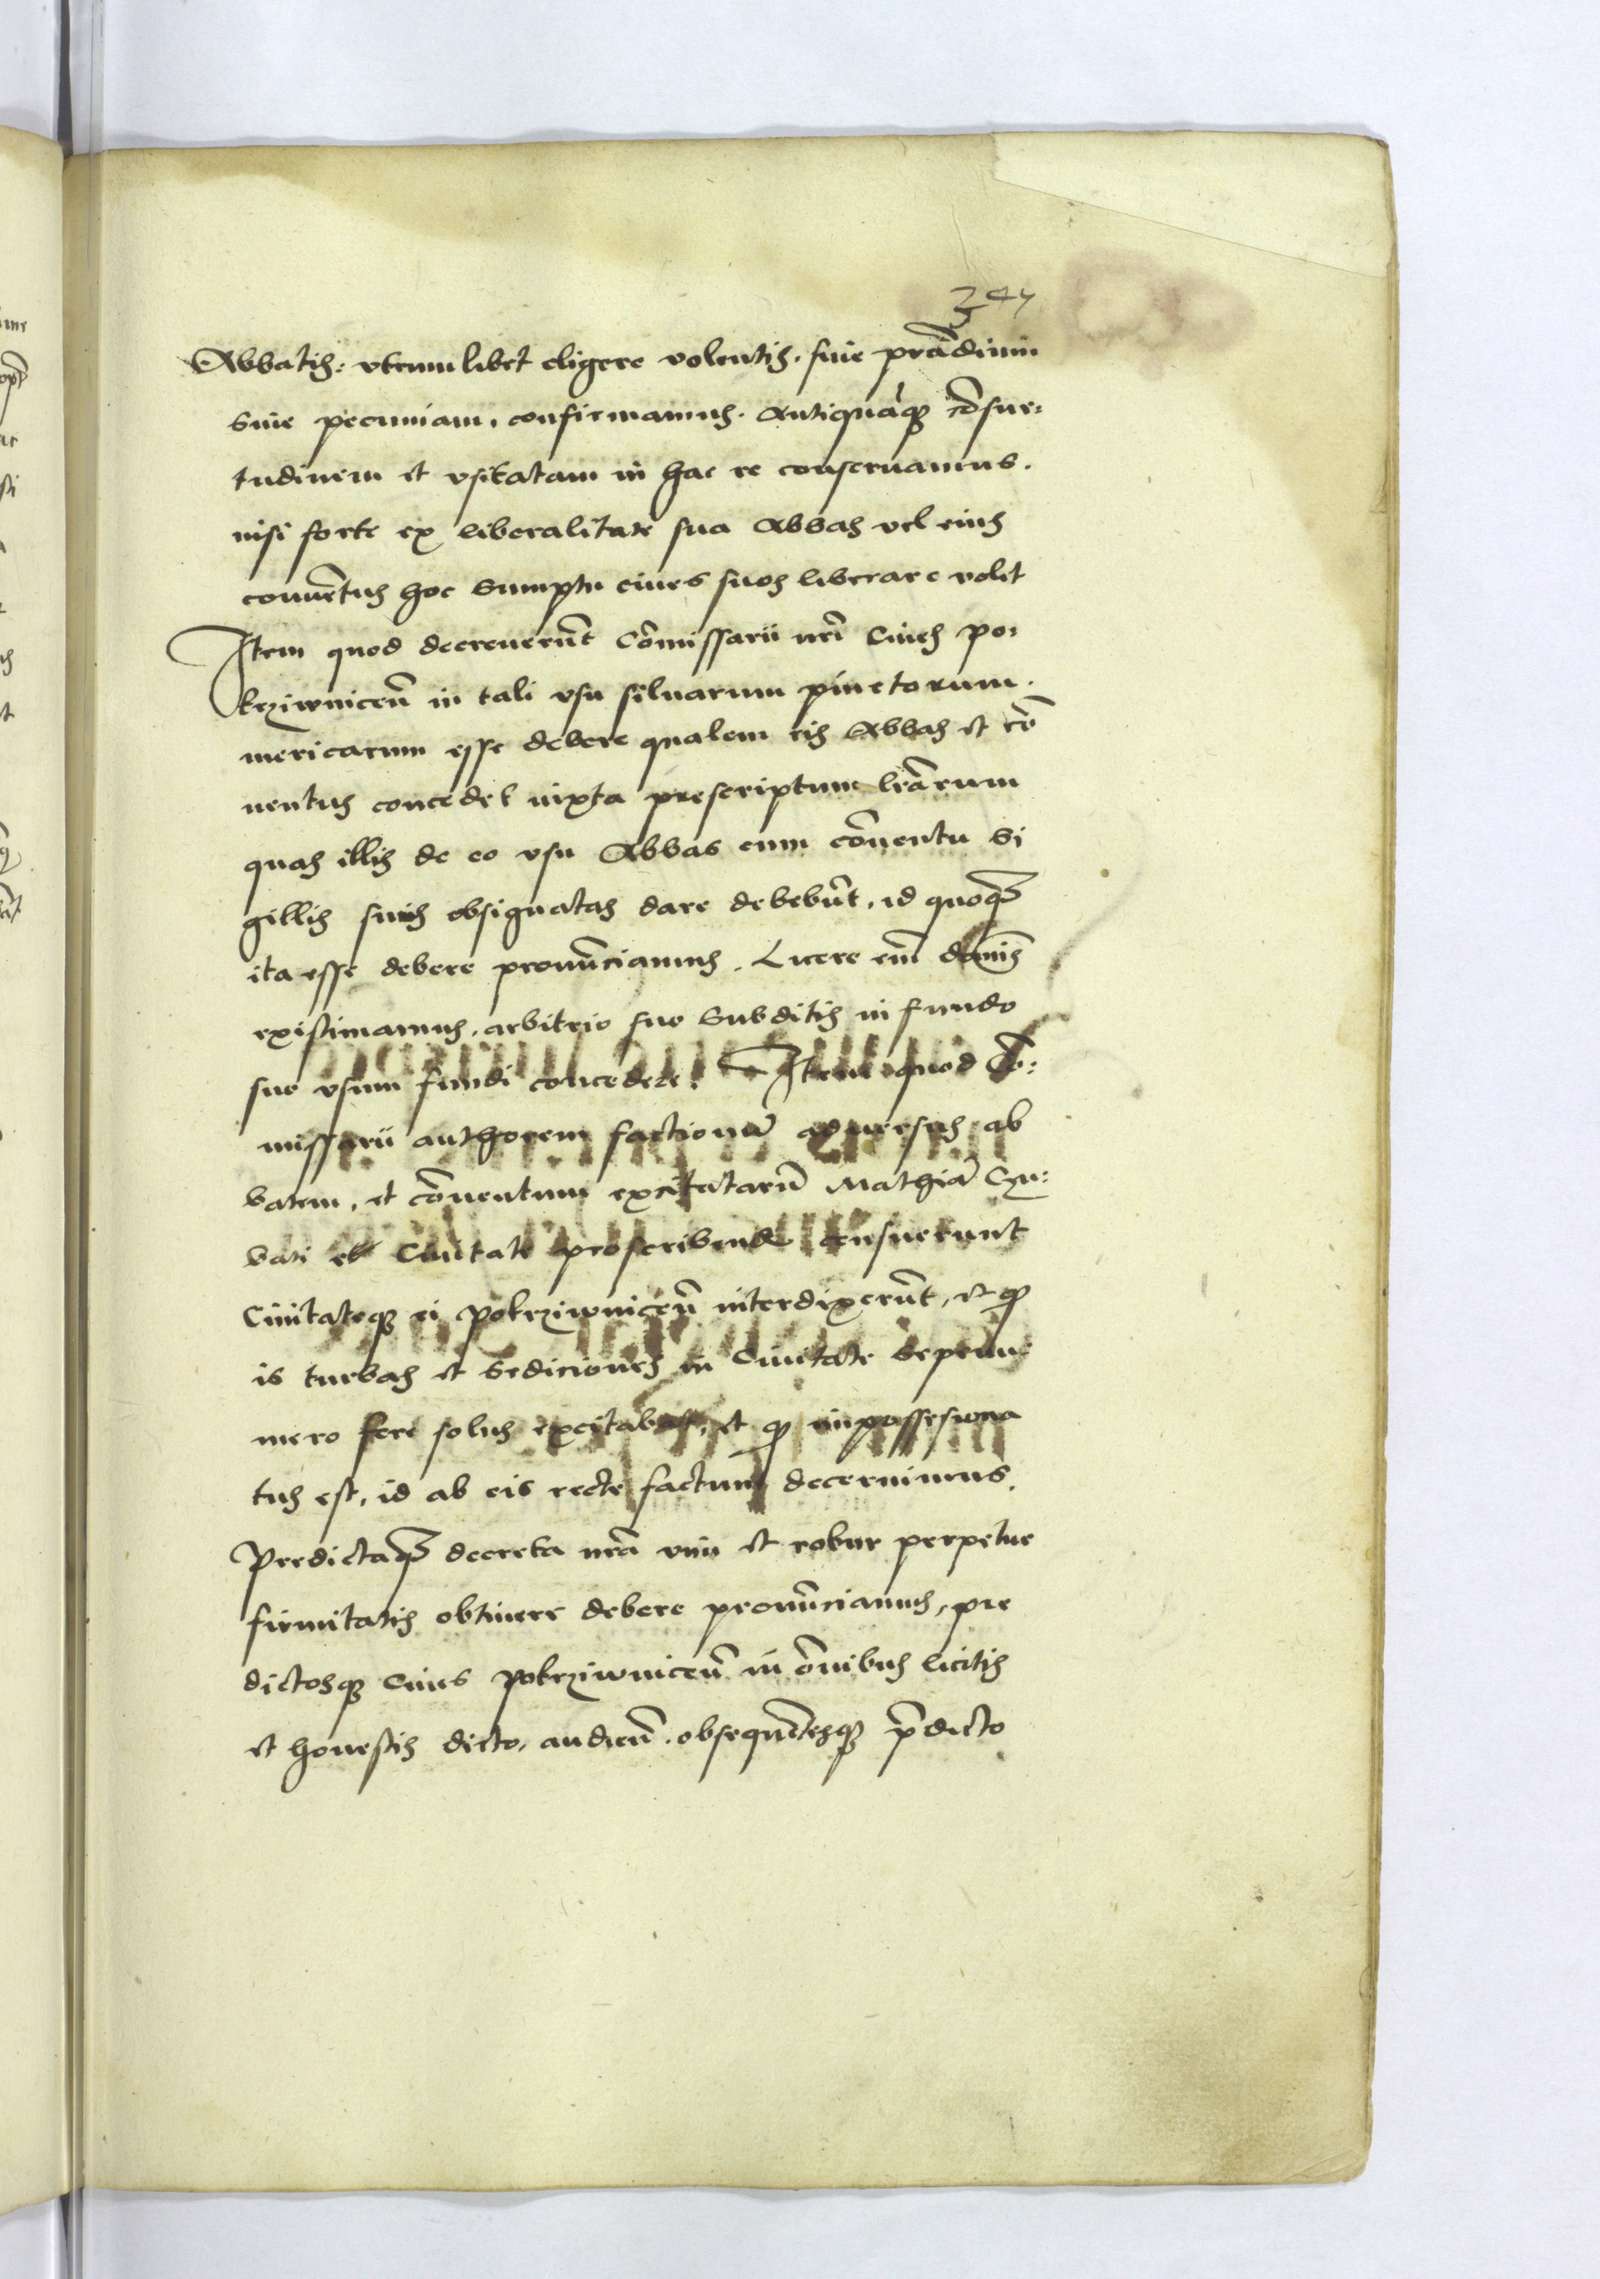 347
Abbatis: vtrumlibet eligere volentis. siue prãdium
siue pecuniam, confirmamus. Antiquãq3 cõsue:
tudinem et vsitatam in hac re conseruamus.
nisi forte ex liberalitate sua Abbas vel eius
conuẽtus hoc sumptu ciues suos liberare volet
Item quod decreuerũt Cõmissarii nr̃i Ciues po:
krziwniceñ in tali vsu siluarum pinetorum.
mericarum esse debere qualem eis Abbas et cõ
uentus concedet iuxta prescriptum lr̃arum
quas illis de eo vsu Abbas cum cõuentu si
gillis suis obsignatas dare debebũt, id quoq3
ita esse debere pronũciamus. Licere eñi dominis
existimamus, arbitrio suo subditis in fundo
suo vsum fundi concedere. Item quod Cõ:
missarii authorem factionũ aduersus ab
batem, et cõuentum excitatarũ Mathiã Czu:
bati et Ciuitate proscribendũ censuerunt
Ciuitateq3 ei pokrziwniceñ interdixerũt, et q
is turbas et sediciones in Ciuitate
mero fere solus excitabat, et q impossesiona
tus est, id ab eis recte factum decernimus.
Predictaq3 decreta nr̃a vim et robur perpetue
firmitatis obtinere debere pronũciamus, pre
dictosq3 Ciues pokrziwniceñ in õmibus licitis
et honestis dicto, audieñ. obsequẽtesq3 p̃dicto